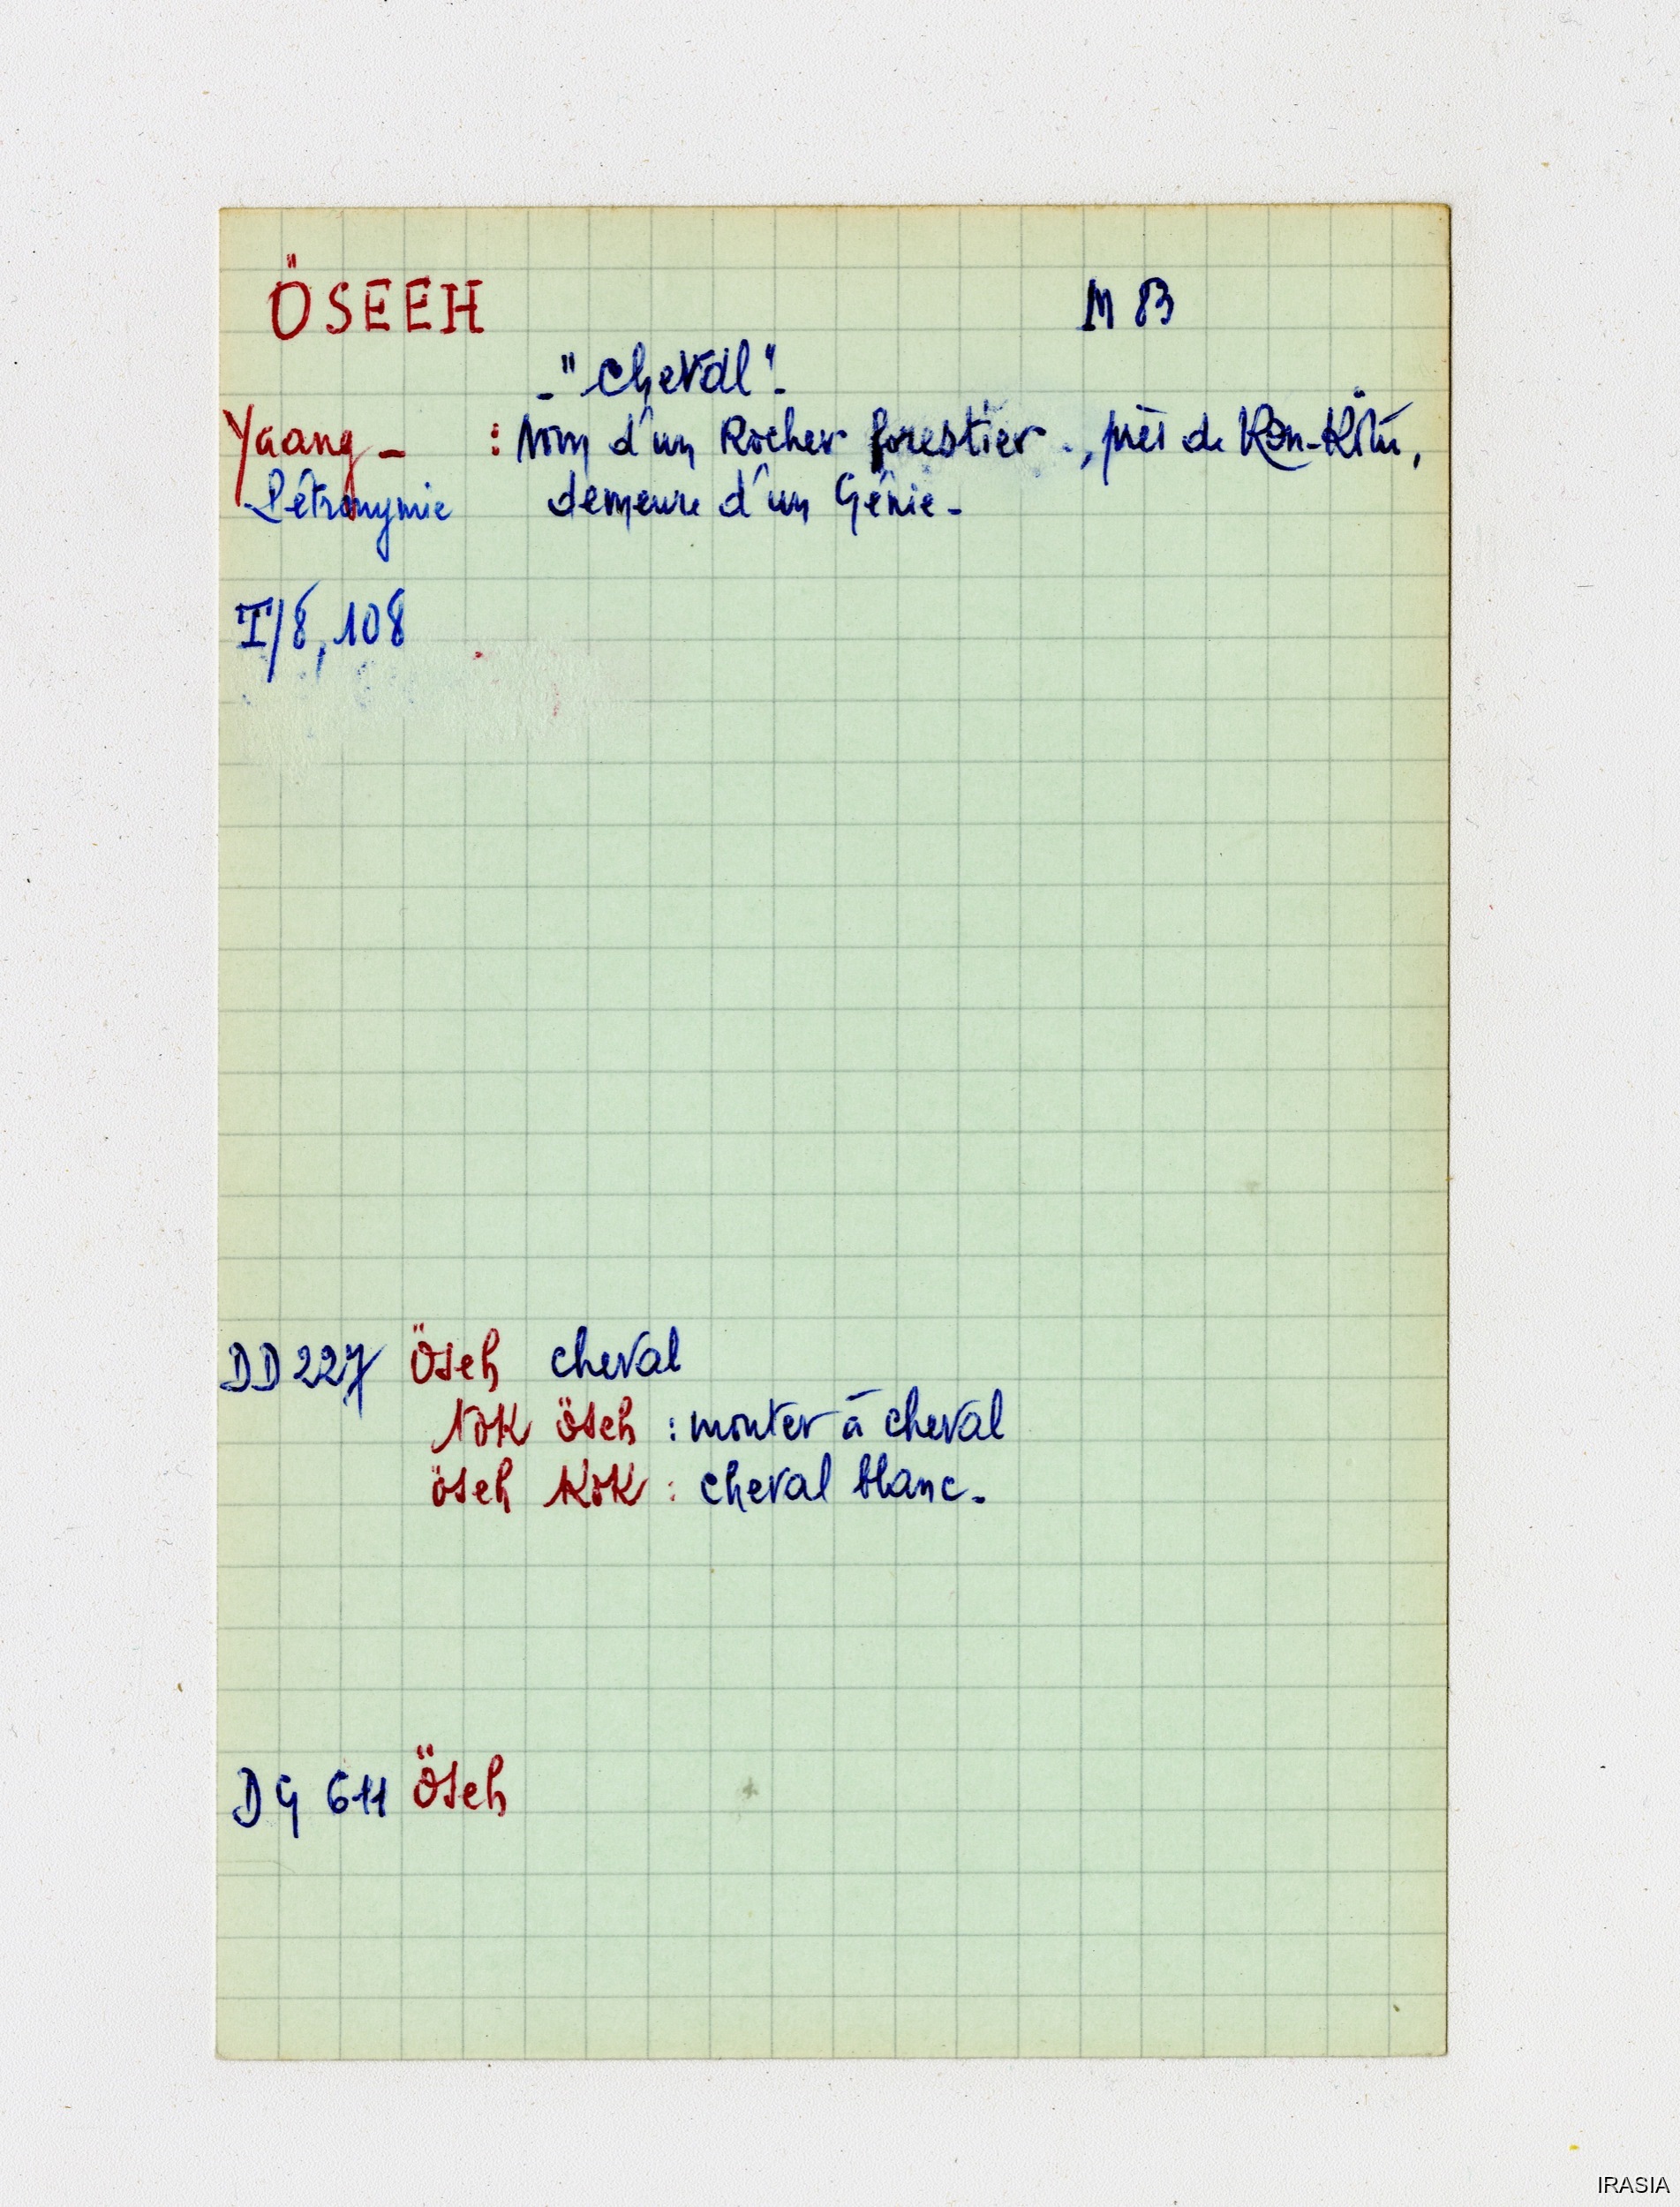 ÖSEEH M 83
- "cheval" -
Yaang - : Nom d'un Rocher forestier., près de Kon-Kötu,
Pétronymie demeure d'un Génie -
I/8, 108
DD 227 Öseh cheval
Nok öseh : monter à cheval
öseh Kok : cheval blanc.
DG 611 Öseh
IRASIA